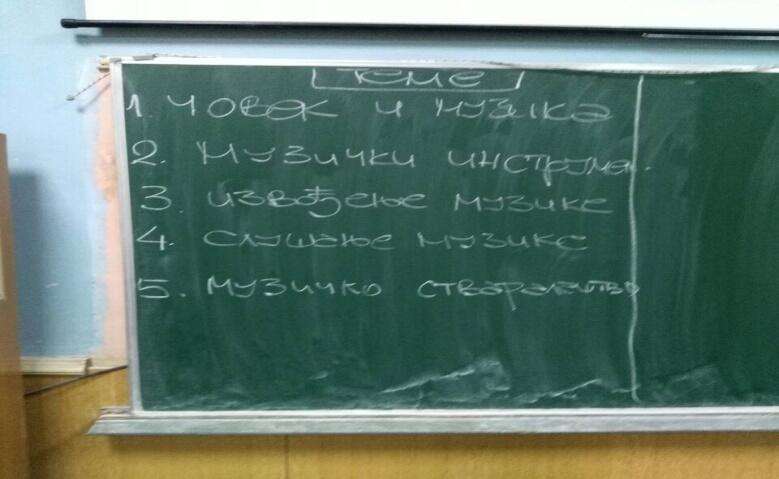 Теме
1. ЧОВЕК И МУЗИКА
2. МУЗИЧКИ ИНСТРУМЕН.
3. ИЗВОЂЕЊЕ МУЗИКЕ
4. СЛУШАЊЕ МУЗИКЕ
5. МУЗИЧКО СТВАРАЛАШТВО